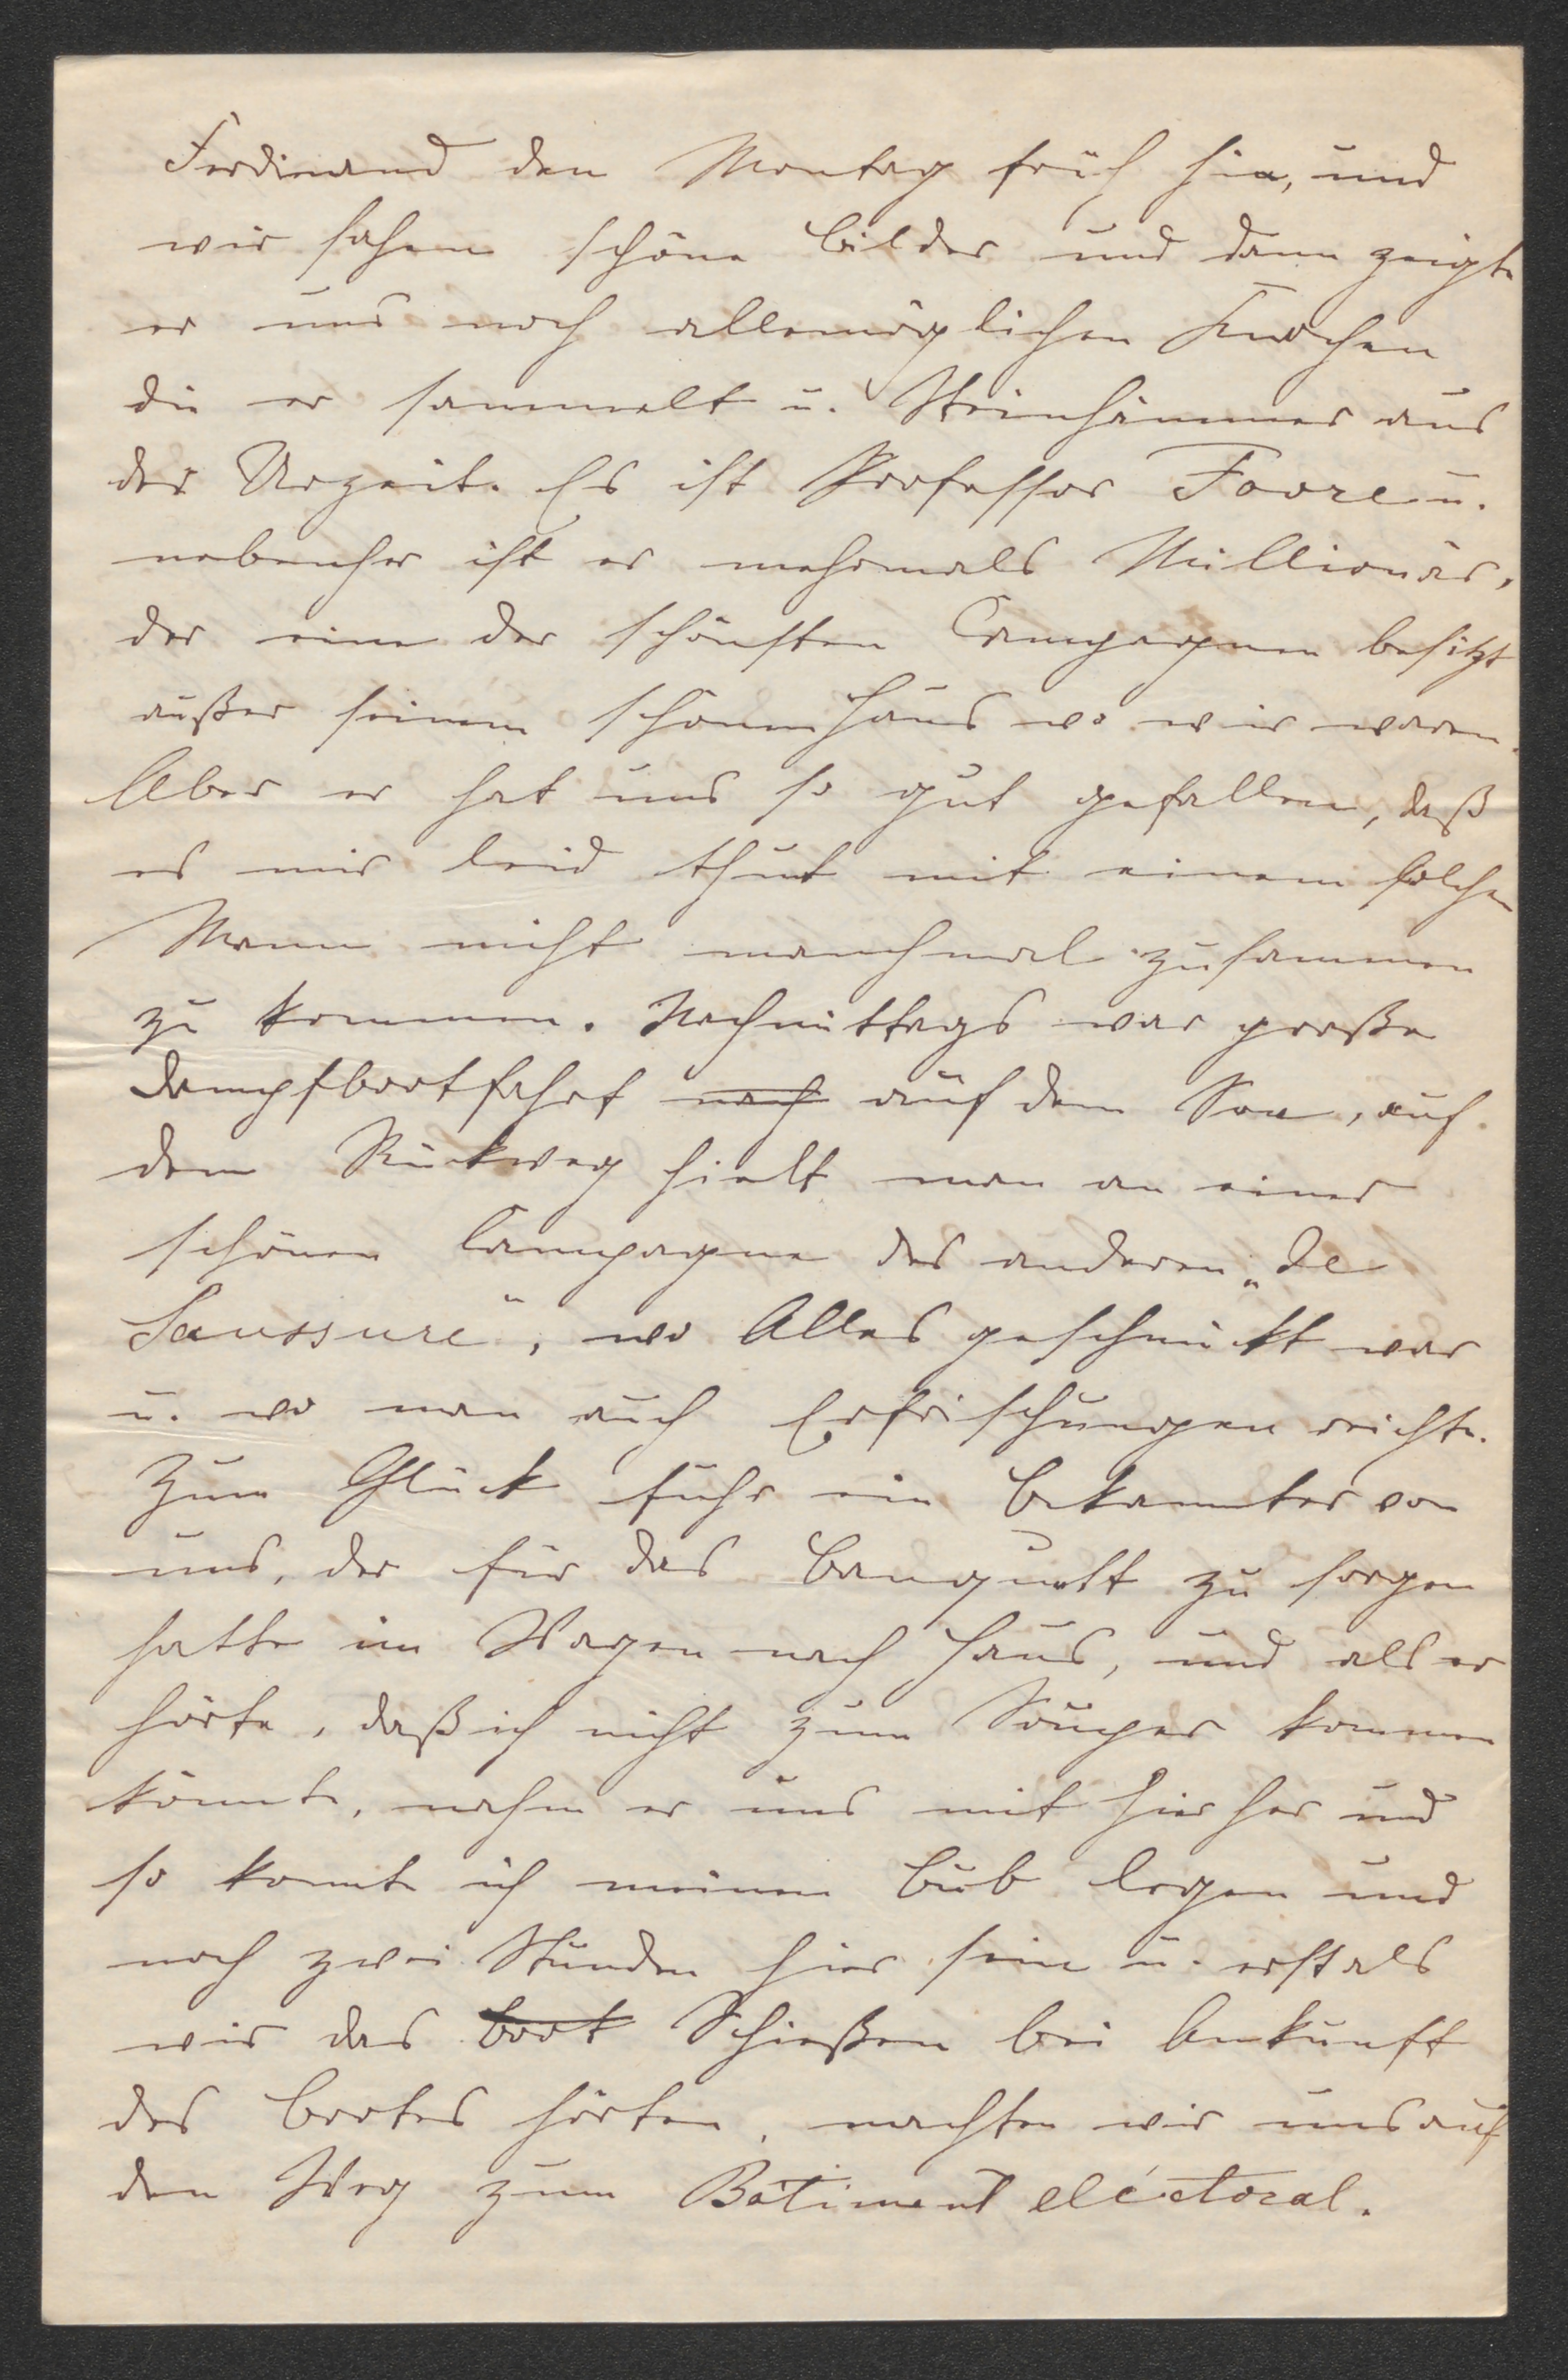 Ferdinand den Montag früh hin, und
wir sahen schöne Bilder und dann zeigte
er uns noch allemöglichen Knochen
die er sammelt u. Steinhämmer aus
der Urzeit. Es ist Professor Favre u.
nebenher ist er mehrmals Millionär,
der eine der schönsten Campagnen besitzt
außer seinem schönen Haus wo wir waren.
Aber er hat uns so gut gefallen, daß
es mir leid thut mit einem solchen
Mann nicht manchmal zusammen
zu kommen. Nachmittags war große
Dampfbootfahrt nach auf dem See, auf
dem Rückweg hielt man an einer
schönen Campagne des anderen „de
Saussure“, wo Alles geschmückt war
u. wo man auch Erfrischungen reichte.
Zum Glück fuhr ein Bekannter von
uns, der für das Banquett zu sorgen
hatte im Wagen nach Haus, und als er
hörte, daß ich nicht zum Souper kommen
könnte, nahm er uns mit hierher und
so konnte ich meinen Bub legen und
noch zwei Stunden hier sein u. erst als
wir das Boot Schießen bei Ankunft
des Bootes hörten, machten wir uns auf
den Weg zum Bâtiment eléctoral.